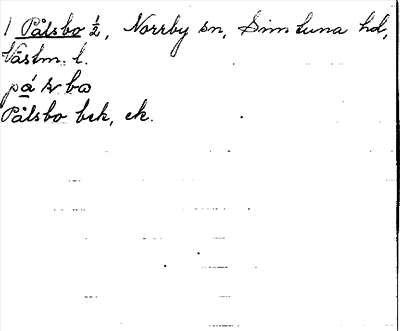 1 Pålsbo ½, Norrby sn, Simtuna hd,
Västm. l.
Pålsbo bsk, ek.